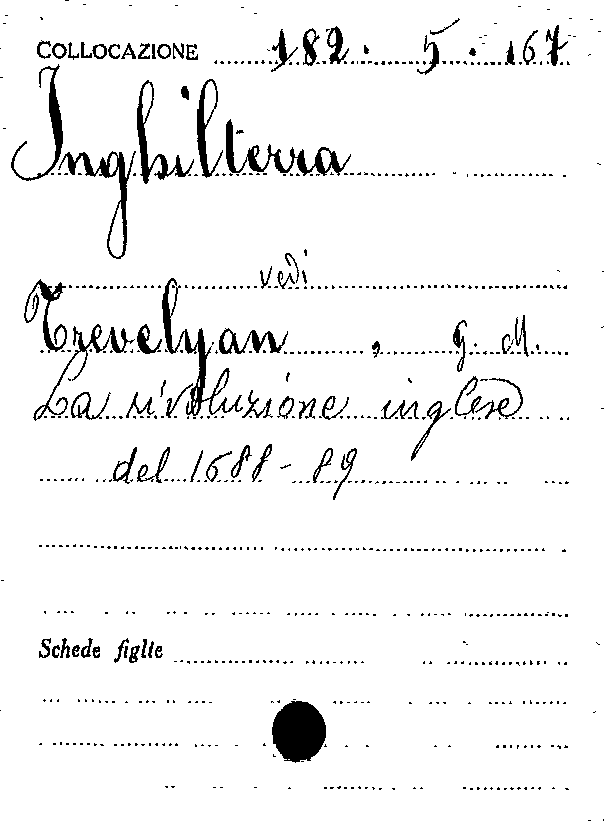 COLLOCAZIONE 182. 5. 167
Inghilterra
vedi
Trevelyan, G. M.
La rivoluzione inglese
del 1688-89
Schede figlie